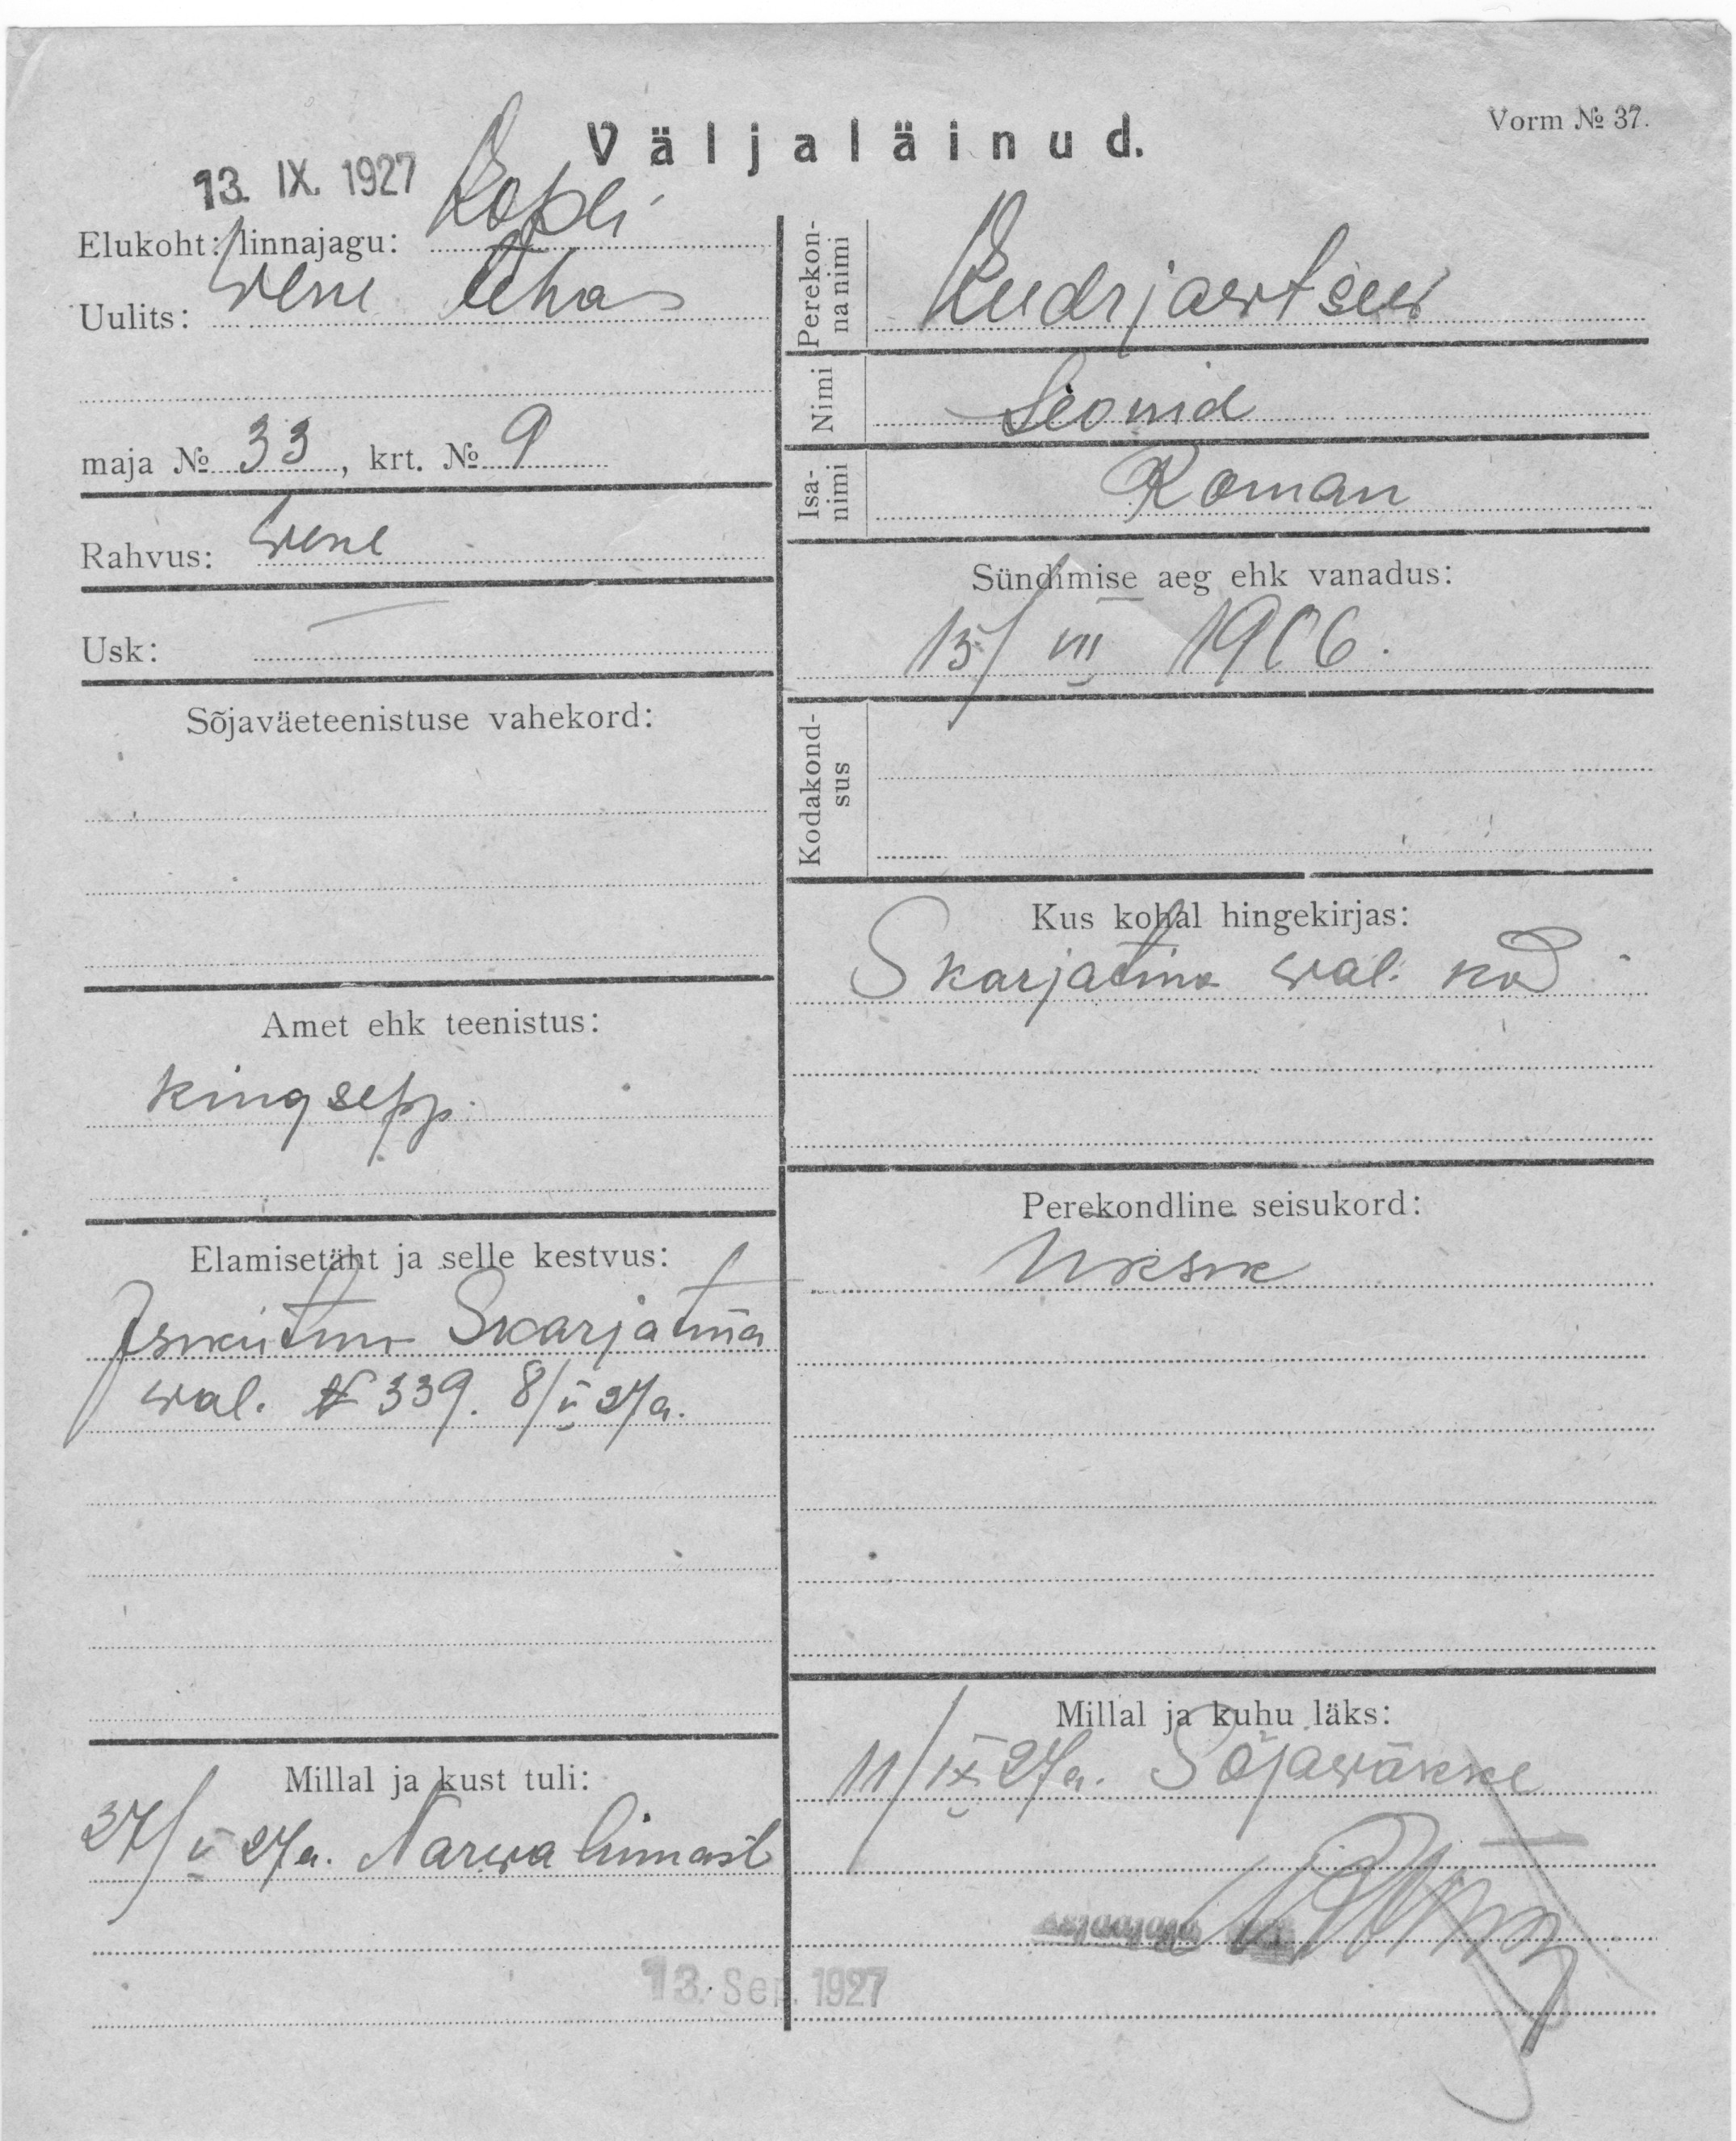 Vorm № 37.
Väljaläinud.
13. IX. 1927
Elukoht: linnajagu: Kopli
Uulits: Wene tehas
maja № 33, krt. № 9
Rahvus: Wene
Usk: —
Sõjaväeteenistuse vahekord:
Amet ehk teenistus:
kingsepp.
Elamisetäht ja selle kestvus:
Isikutun Skarjatina
wal. № 339. 8/II 27a.
Millal ja kust tuli:
27/V 27a. Narwa linnast
Perekonna nimi
Kudrjawtsew
Nimi
Leonid
Isanimi
Roman
Sündimise aeg ehk vanadus:
15/VII 1906.
Kodakondsus
Kus kohal hingekirjas:
Skarjatina wal. kod
Perekondline seisukord:
Üksik
Millal ja kuhu läks:
11/IX 27a. Sõjawäkke
13. Sep. 1927